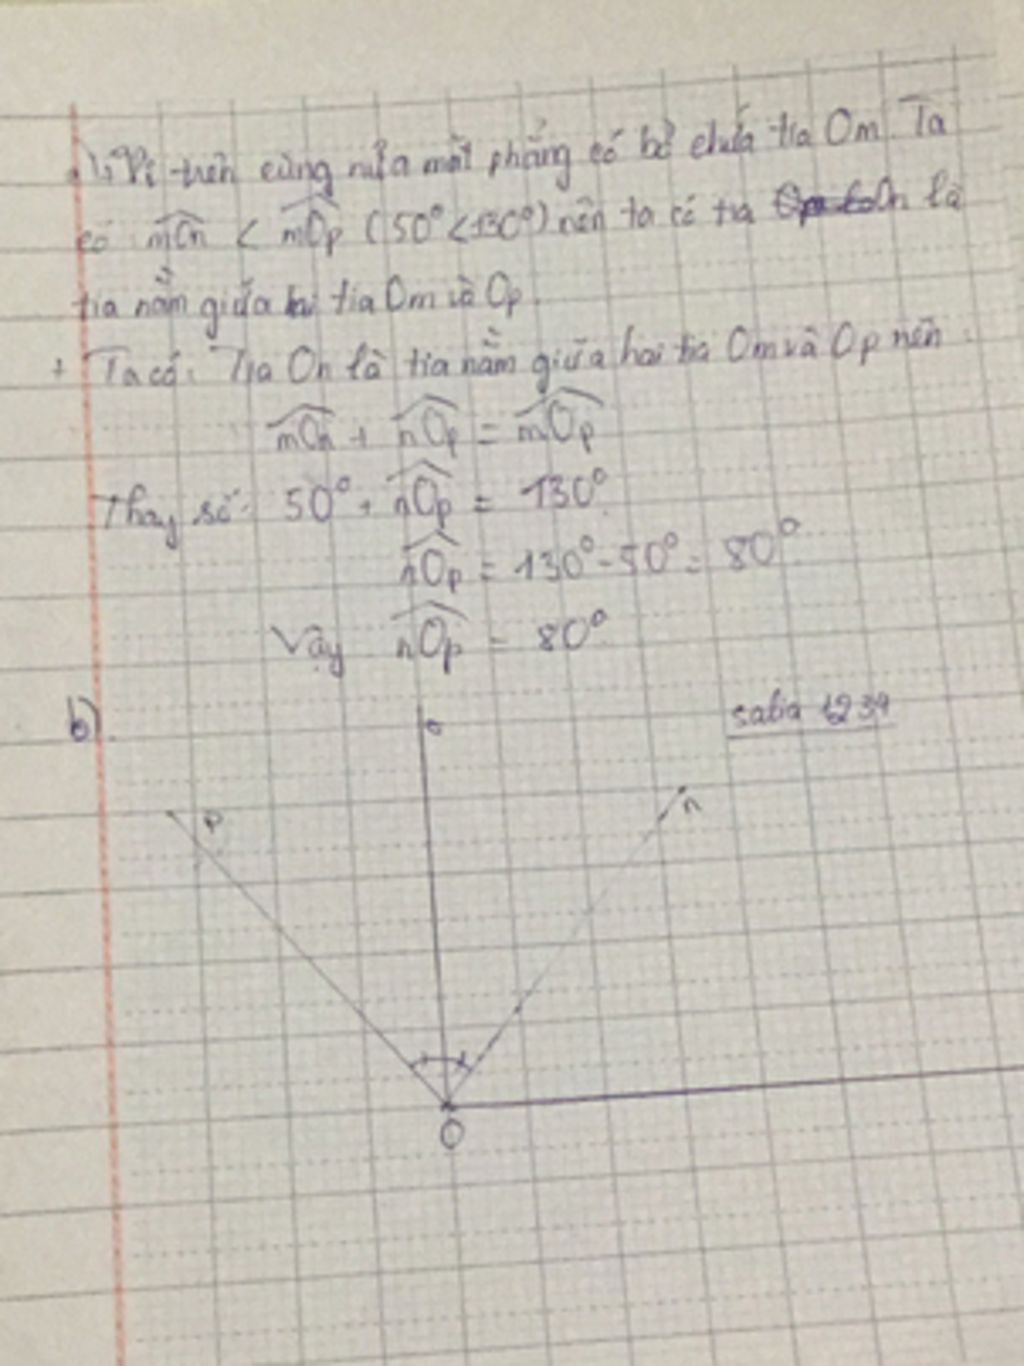 Vì trên cùng nửa mặt phẳng có bờ chứa tia Om. Ta
có mOn < mOp (50° < 130°) nên ta có tia On là
tia nằm giữa hai tia Om và Op.
+ Ta có: Tia On là tia nằm giữa hai tia Om và Op nên:
mOn + nOp = mOp
Thay số: 50° + nOp = 130°
nOp = 130° - 50° = 80°
Vậy nOp = 80°
b)
sabia 1234
p
n
O